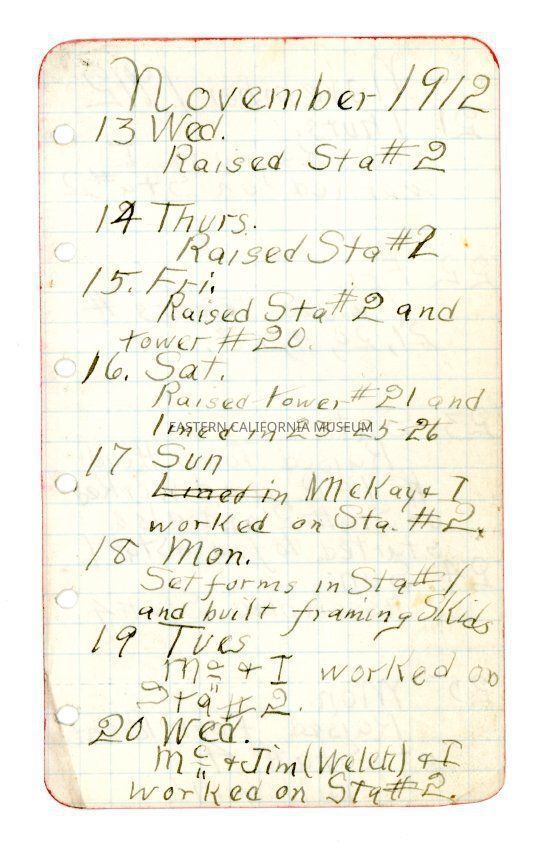 November 1912
13 Wed.
Raised Sta # 2
14 Thurs.
Raised Sta # 2
15. Fri.
Raised Sta # 2 and
tower # 20.
16. Sat.
Raised tower # 21 and
lined in 23-25-26
EASTERN CALIFORNIA MUSEUM
17 Sun
Lined in McKay & I
worked on Sta. # 2.
18 Mon.
Set forms in Sta # 1
and built framing skids
19 Tues
Mc & I worked on
Sta # 2.
20 Wed.
Mc & Jim (Welch) & I
worked on Sta # 2.